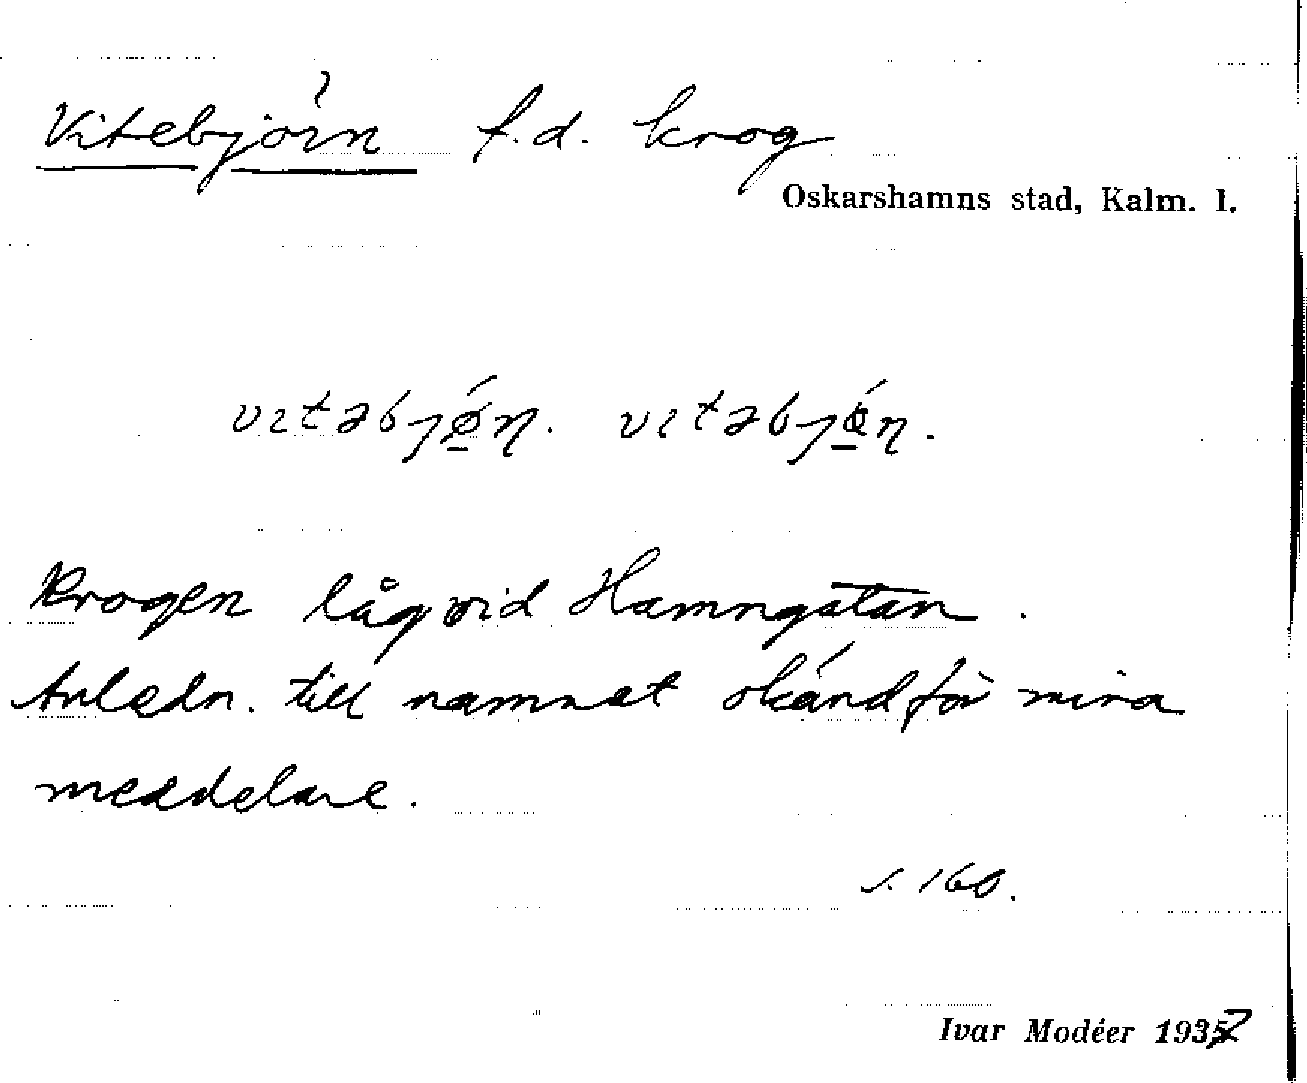 Vitebjörn f.d. krog
Oskarshamns stad, Kalm. l.
vıtəbjǿ̱ɳ. vıtəbjǿ̱ɳ.
Krogen låg vid Hamngatan.
Anledn. till namnet okänd för mina
meddelare.
s. 160.
Ivar Modéer 1937